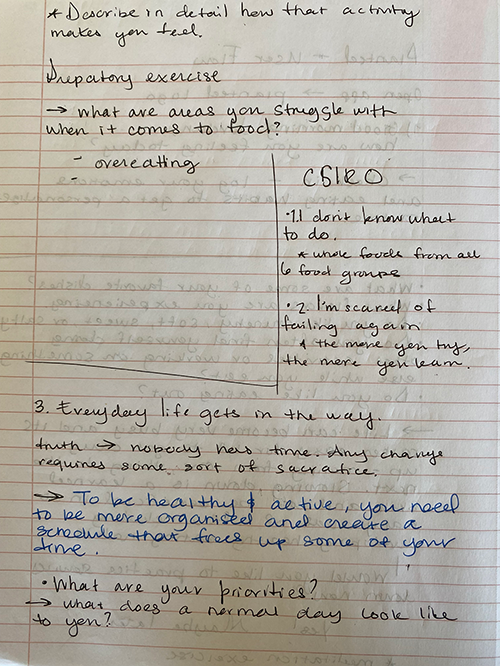 * Describe in detail how that activity
makes you feel.
Prepatory exercise
→ what are areas you struggle with
when it comes to food?
- overeating
-
CSIRO
• 1. I don't know what
to do.
* whole foods from all
6 food groups
• 2. I'm scared of
failing again
* the more you try,
the more you learn.
3. Everyday life gets in the way.
truth → nobody has time. Any change
requires some sort of sacrafice.
→ To be healthy & active, you need
to be more organised and create a
schedule that frees up some of your
time.
• What are your priorities?
→ what does a normal day look like
to you?